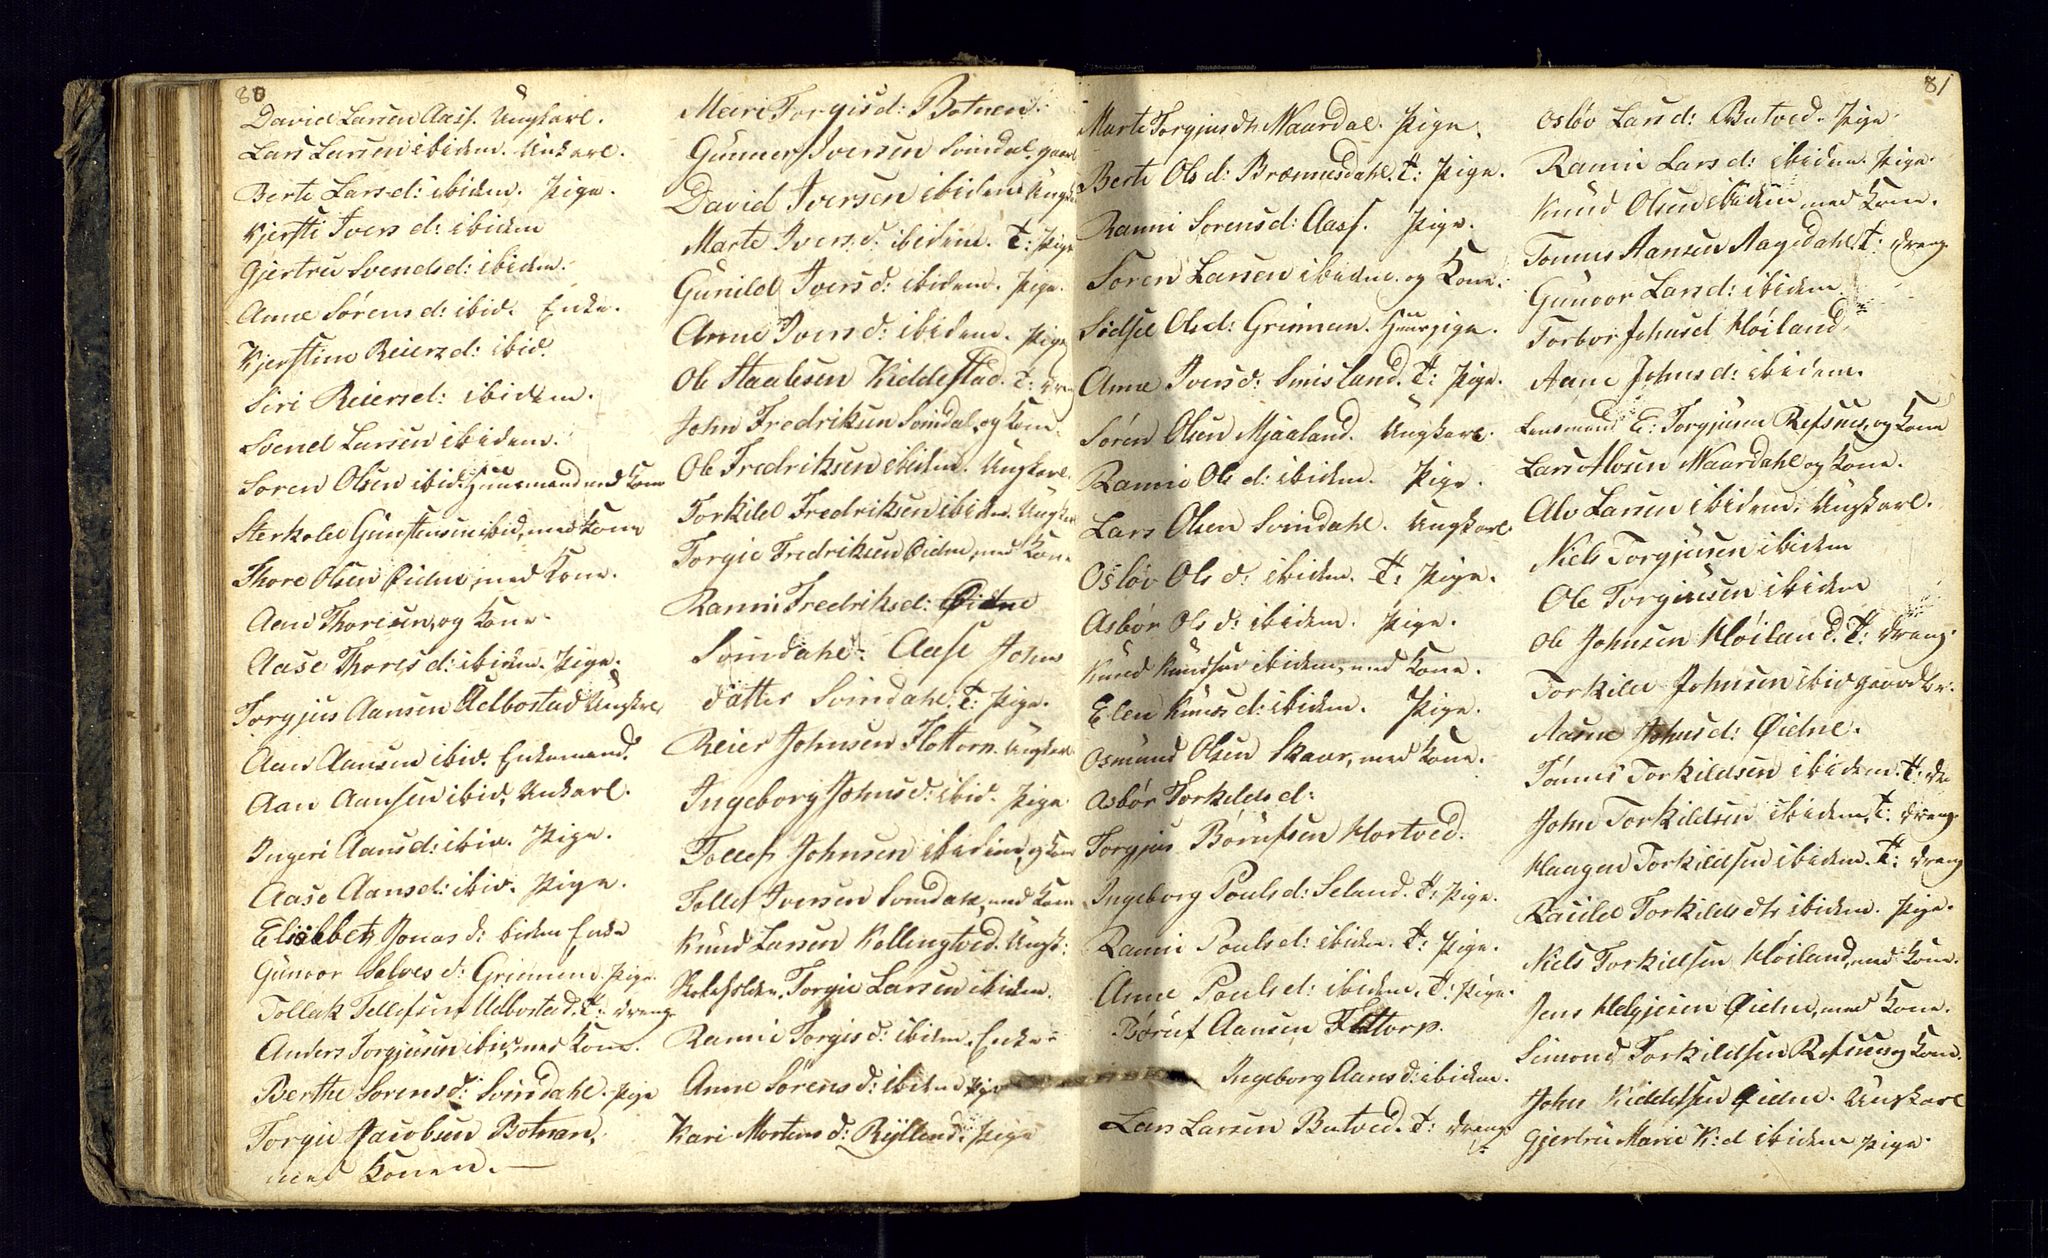 80
David Larsen Aass. Ungkarl.
Lars Larsen ibidem. Unkarl.
Berte Larsd: ibidem. Pige.
Kjersti Iversd: ibidem
Gjertru Svendsd: ibidem.
Anne Sørensd: ibid. Enke.
Kjerstine Reiersd: ibid.
Siri Reiersd: ibidem.
Svend Larsen ibidem.
Søren Olsen ibid. Huusmand med Kone
Sterkoled Gunstensen ibid, med Kone
Thore Olsen Øidne, med Kone.
Aan Thoresen, og Kone.
Aase Thoresd: ibidem. Pige.
Torgjus Aansen Udbostad Ungkarl
Aan Aansen ibid. Enkemand.
Aan Aansen ibid. Unkarl.
Ingeri Aansd: ibid. Pige.
Aase Aansd: ibid. Pige.
Elisabet Jonasd: ibidem Enke
Gunvor Salvesd: Grimmen. Pige.
Tollak Tellefsen Udbostad. T: Dreng
Anders Torgjusen ibid, med Kone.
Berthe Sørensd: Svindahl. Pige
Torgie Jacobsen Botnan,
med Konen.
Mari Torgisd: Botnen.
Gunner Iversen Svindal. gaard
David Iversen ibidem Ungkarl
Marte Iversd: ibidem. T: Pige
Gunild Iversd: ibidem. Pige.
Anne Iversd: ibidem. Pige
Ole Staalesen Kiddelstad. T: Dreng
John Fredriksen Svindal, og Kone.
Ole Fredriksen ibidem. Ungkarl.
Torkild Fredriksen ibidem. Ungkarl
Torgie Fredriksen Øidne, med Kone
Ranni Fredriksd: Øidne
Svindahl. Aase John
datter Svindahl. T: Pige.
Reier Johnsen Flottorp. Ungkarl
Ingeborg Johnsd: ibid. Pige
Tollef Johnsen ibidem, og Kone
Tollef Iversen Svindahl, med Kone
Knud Larsen Kollingtved. Ungk:
Torgie Larsen ibidem.
Ranni Torgisd: ibidem. Enke
Anne Sørensd: ibidem Pige
Kari Mortensd: Røilland. Pige
81
Marte Torgjusdtr Naardal. Pige.
Berte Olsd: Brønnesdahl. T: Pige.
Ranni Sørensd: Aass. Pige.
Søren Larsen ibidem. og Kone.
Sidsel Olsd: Grimmen. Huuspige.
Anne Iversd: Sinisland. T: Pige.
Søren Olsen Mjaaland. Ungkarl.
Ranni Olsd: ibidem. Pige.
Lars Olsen Svindahl. Ungkarl
Osløv Olsd: ibidem. T: Pige.
Asbør Olsd: ibidem. Pige.
Knud Knudsen ibidem, med Kone.
Elen Knudsd: ibidem. Pige.
Osmund Olsen Skaar, med Kone.
Asbør Torkildsd:
Torgjus Børufsen Hortved.
Ingeborg Poulsd: Seland. T: Pige.
Ranni Poulsd: ibidem. T: Pige.
Anne Poulsd: ibidem. T: Pige.
Børuf Aansen Flottorp.
Ingeborg Aansd: ibidem.
Lars Larsen Butved. T: Dreng.
Osløv Larsd: Butved. Pige
Ranni Larsd: ibidem. Pige.
Knud Olsen ibidem med Kone.
Tønnes Hansen Aagedahl. T: Dreng
Gunvor Larsd: ibidem
Torbor Johnsd Høiland
Aane Johnsd: ibidem.
Lensmand E: Torgjusen Refsnes, og Kone
Lars Alvsen Naardahl og Kone.
Alv Larsen ibidem. Ungkarl.
Niels Torgjusen ibidem
Ole Torgjusen ibidem
Ole Johnsen Høiland. T: Dreng.
Torkild Johnsen ibid gaardbr.
Aasne Johnsd: Øidne.
Tønnes Torkildsen ibidem. T: Dr
John Torkildsen ibidem. T: Dreng.
Haagen Torkildsen ibidem. T: Dreng
Raaild Torkildsdtr ibidem. Pige.
Niels Torkildsen Høiland, med Kone.
Jens Helgiesen Øidne, med Kone.
Simond Torkildsen Refsnes og Kone.
John Kiddelsen Øidne. Unkarl
Gjertru Marie K:d ibidem Pige.